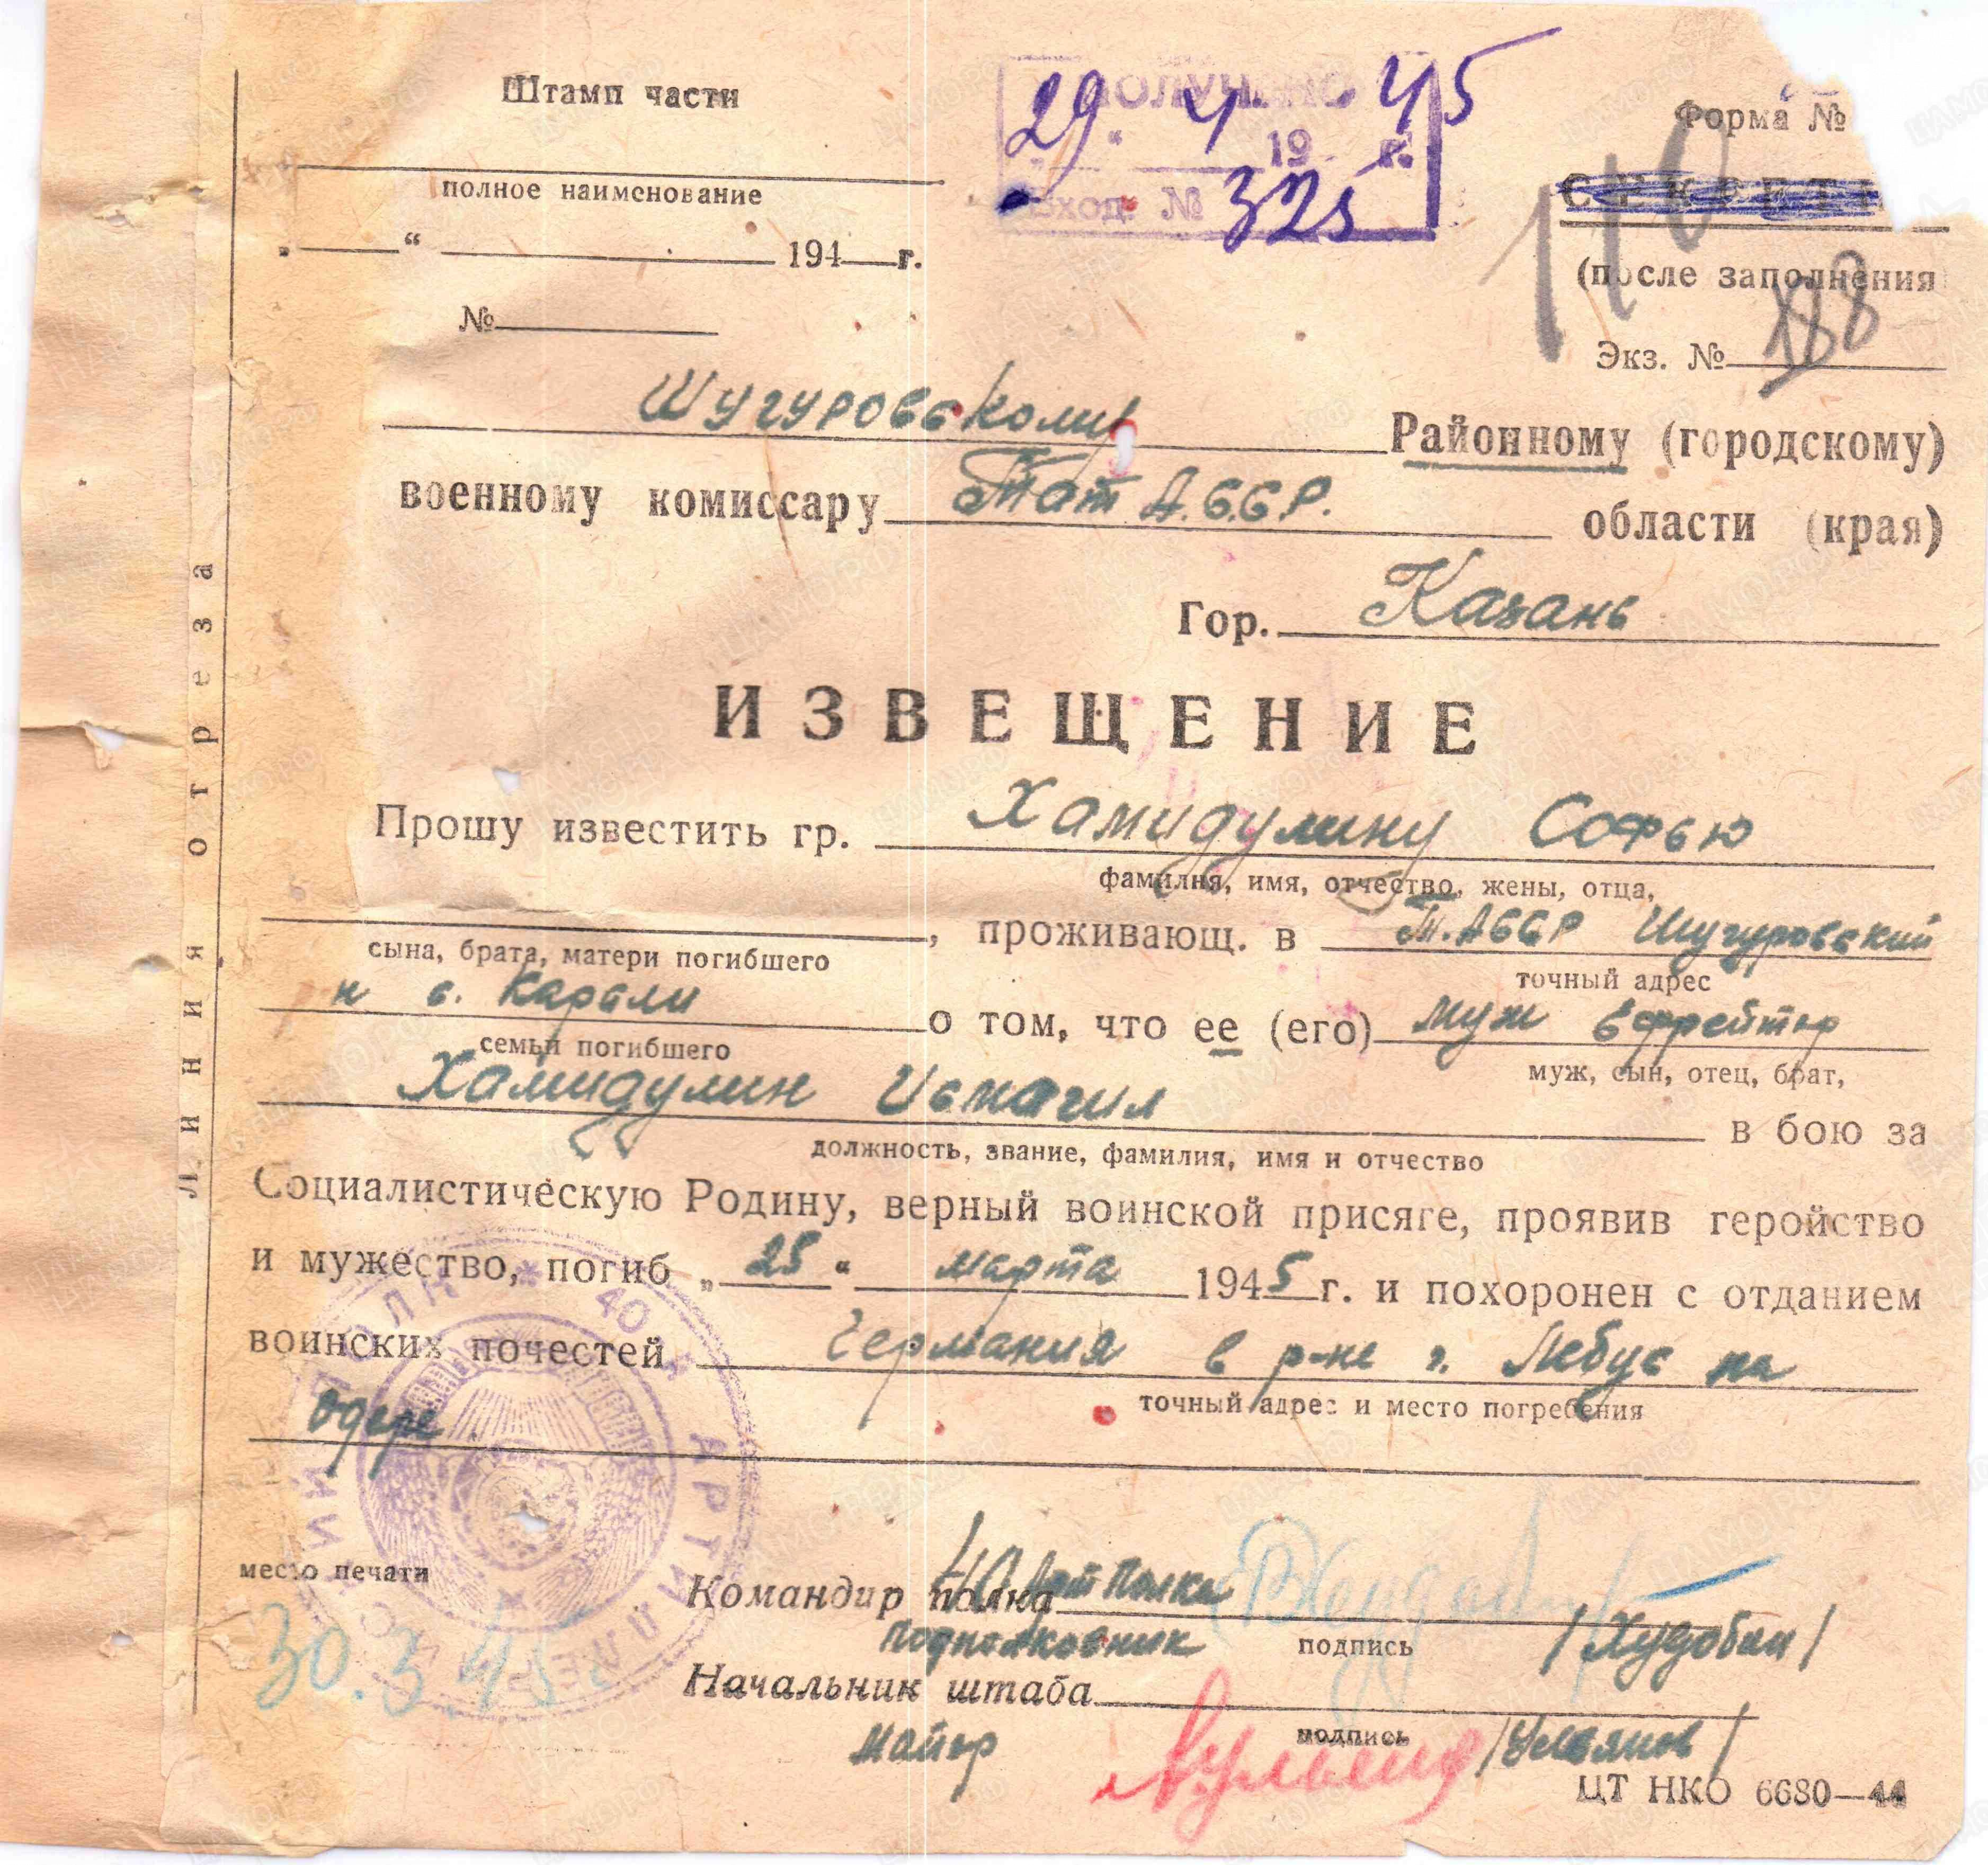 Штамп части
полное наименование
„ “ 194 г.
№
ПОЛУЧЕНО
29 4 1945 г.
Вход. № 325
Форма №
СЕКРЕТН
(после заполнения
110
Экз. №
Шугуровскому Районному (городскому)
военному комиссару Тат А.С.С.Р. области (края)
Гор. Казань
ИЗВЕЩЕНИЕ
Прошу известить гр. Хамидулину Софью
фамилия, имя, отчество, жены, отца,
, проживающ. в Т.АССР Шугуровский
сына, брата, матери погибшего
точный адрес
н с. Карали о том, что ее (его) муж Ефрейтор
семьи погибшего
муж, сын, отец, брат,
Хамидулин Исмагил в бою за
должность, звание, фамилия, имя и отчество
Социалистическую Родину, верный воинской присяге, проявив геройство
и мужество, погиб „25“ марта 1945 г. и похоронен с отданием
воинских почестей Германия в р-не г. Лебус на
точный адрес и место погребения
Одере
место печати
30.3.45
40 АРТИЛЛЕР ПОЛК
Командир полка 40 Арт Полка
Подполковник подпись /Худобин/
Начальник штаба
Майор подпись /Ульянов/
ЦТ НКО 6680—44
Линия отреза